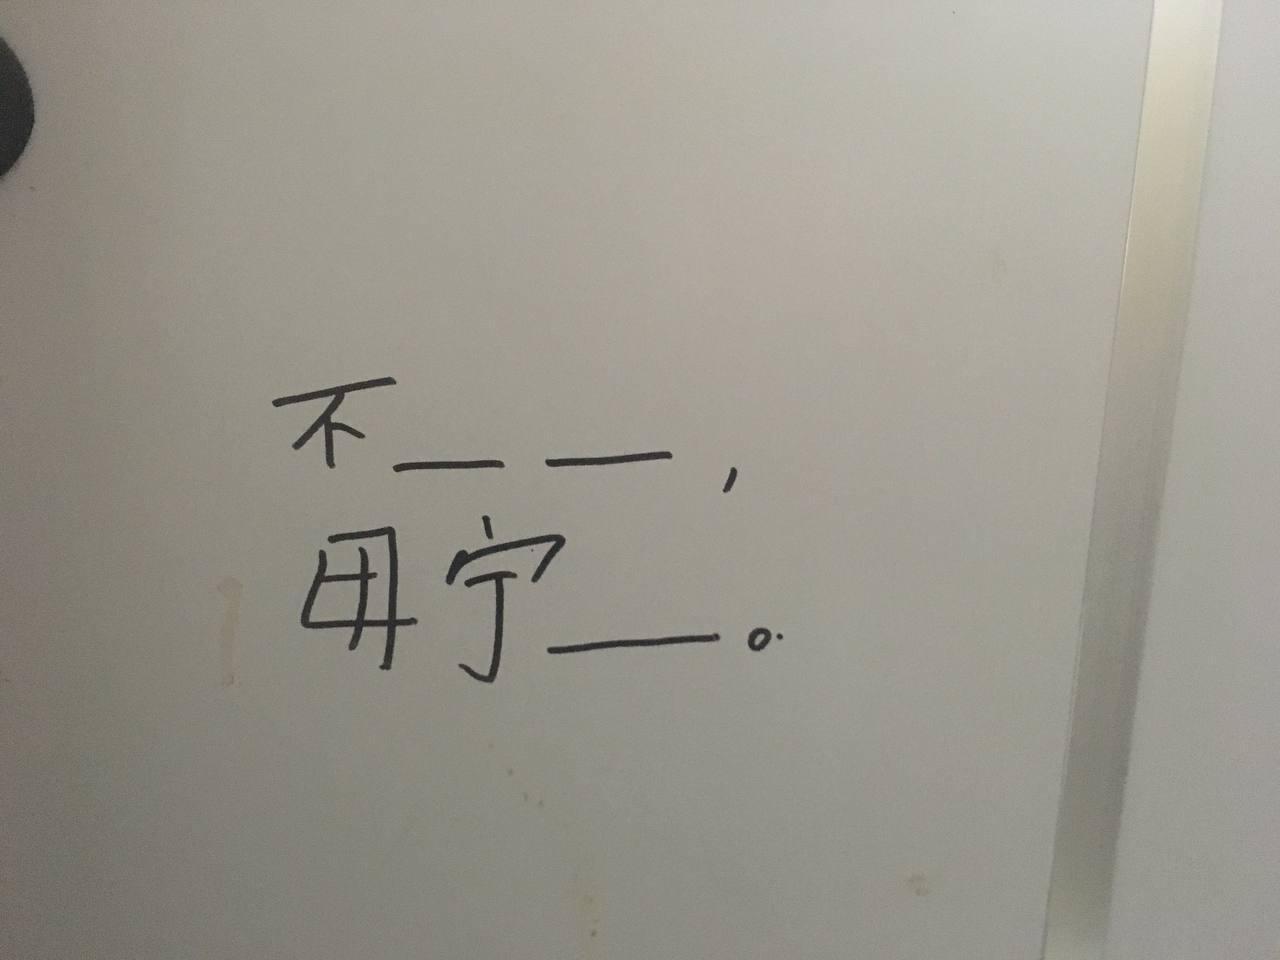 不__ __,
毋宁___。